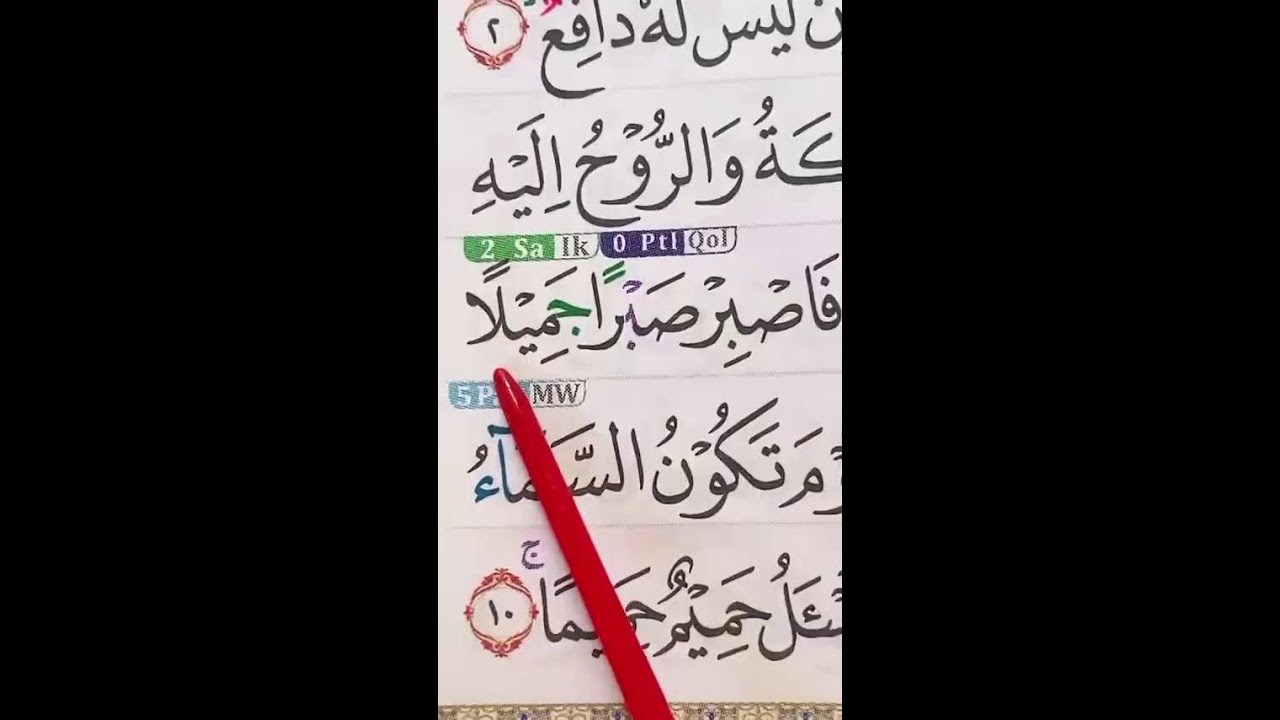 لَيْسَ لَهٗ دَافِعٌ ٢
وَالرُّوْحُ اِلَيْهِ
2 Sa Ik 0 Ptl Qol
فَاصْبِرْ صَبْرًا جَمِيْلًا
MW
تَكُوْنُ السَّمَاۤءُ
حَمِيْمٌ حَمِيْمًاۚ ١٠